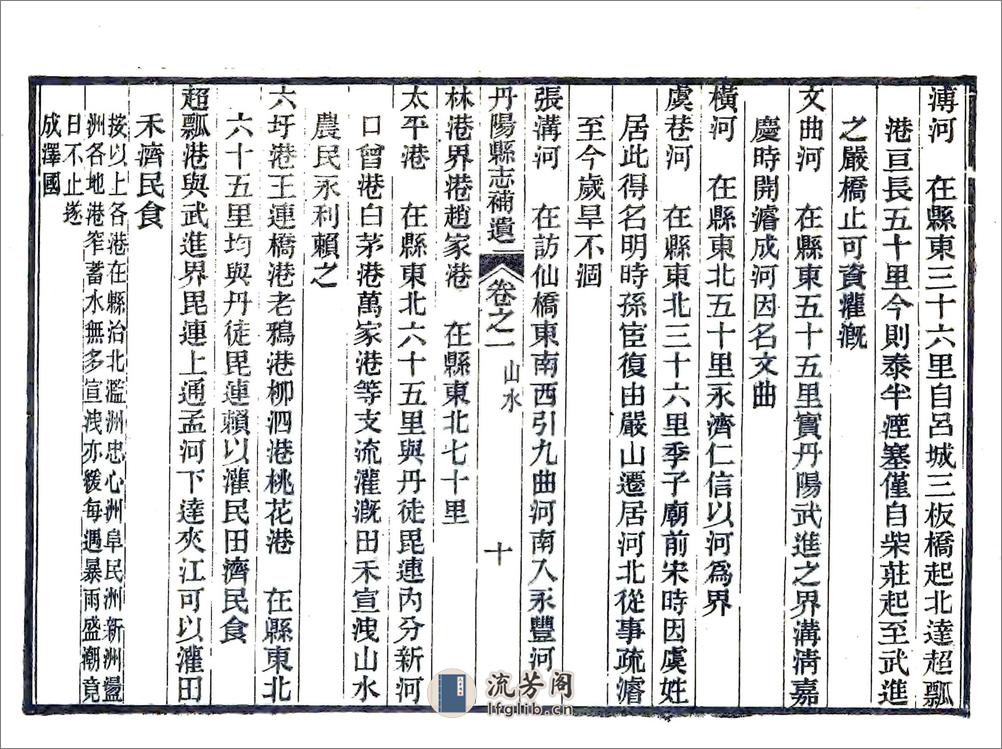 溥河　在縣東三十六里自呂城三板橋起北達超瓢
港亘長五十里今則泰半湮塞僅自柴莊起至武進
之嚴橋止可資灌漑
文曲河　在縣東五十五里實丹陽武進之界溝淸嘉
慶時開濬成河因名文曲
橫河　在縣東北五十里永濟仁信以河爲界
虞巷河　在縣東北三十六里季子廟前宋時因虞姓
居此得名明時孫宦復由嚴山遷居河北從事疏濬
至今歲旱不涸
張溝河　在訪仙橋東南西引九曲河南入永豐河
丹陽縣志補遺　卷之一　山水　十
林港界港趙家港　在縣東北七十里
太平港　在縣東北六十五里與丹徒毘連內分新河
口曾港白茅港萬家港等支流灌漑田禾宣洩山水
農民永利賴之
六圩港王連橋港老鴉港柳泗港桃花港　在縣東北
六十五里均與丹徒毘連賴以灌民田濟民食
超瓢港與武進界毘連上通孟河下達夾江可以灌田
禾濟民食
按以上各港在縣治北濫洲忠心洲阜民洲新洲盪
洲各地港窄蓄水無多宣洩亦緩每遇暴雨盛潮竟
日不止遂
成澤國
流芳阁
lfglib.cn